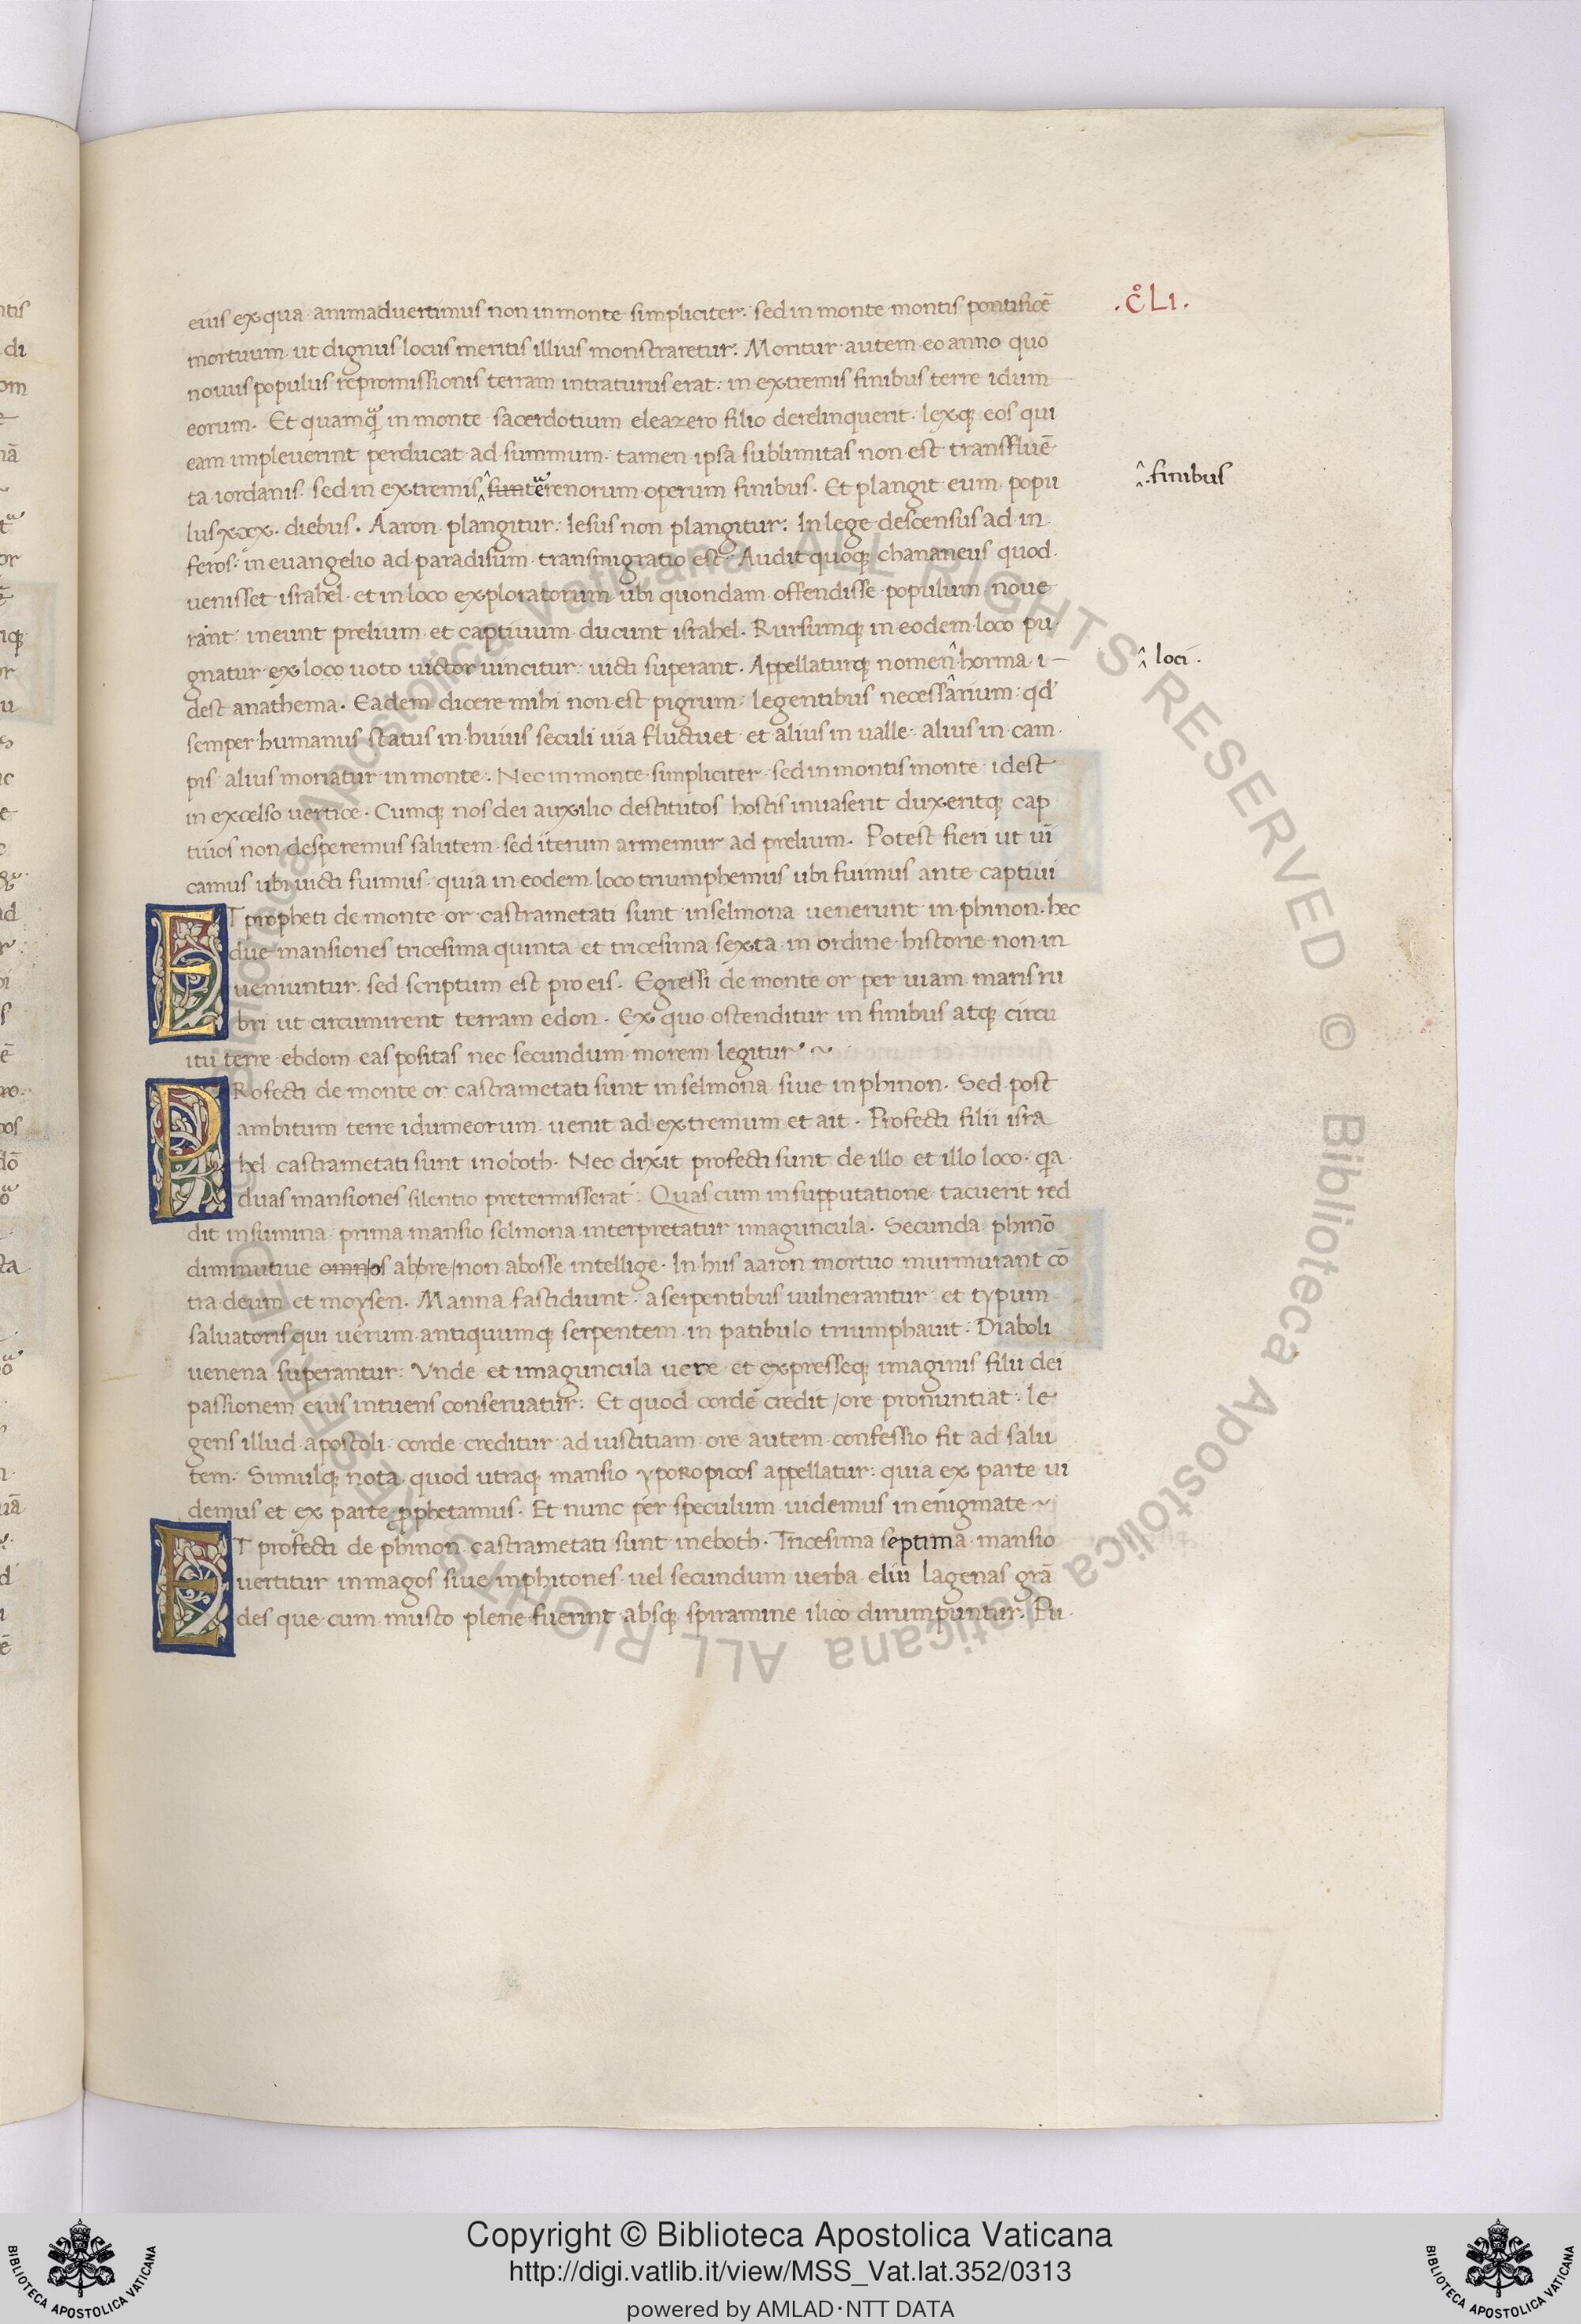 .c̊ Lı.
eius ex qua animaduertimus non in monte simpliciter. sed in monte montis pontificē
mortuum ut dignus locus meritis illius monstraretur: Moritur autem eo anno quo
nouus populus repromissionis terram intraturus erat: in extremis finibus terre idum
eorum. Et quamqᷓ in monte sacerdotium eleazero filio derelinquerit. lexqꝫ eos qui
eam impleuerint perducat ad summum. tamen ipsa sublimitas non est transfluē
ta iordanis. sed in extremis ‸ sunt terrenorum operum finibus. Et plangit eum popu
‸ .finibus
lus xxx. diebus. Aaron plangitur: Iesus non plangitur: In lege descensus ad in
feros: in euangelio ad paradisum transmigratio est. Audit quoqꝫ chananeus quod
uenisset israhel. et in loco exploratorum ubi quondam offendisse populum noue
rant ineunt prelium et captiuum ducunt israhel. Rursumqꝫ in eodem loco pu
gnatur ex loco uoto uictor uincitur: uicti superant. Appellaturqꝫ nomen ‸ horma i
‸ loci.
dest anathema. Eadem dicere mihi non est pigrum: legentibus necessarium: qd'
semper humanus status in huius seculi uia fluctuet et alius in ualle: alius in cam
pis alius moriatur in monte. Nec in monte simpliciter sed in montis monte idest
in excelso uertice. Cumqꝫ nos dei auxilio destitutos hostis inuaserit duxeritqꝫ cap
tiuos non desperemus salutem sed iterum armemur ad prelium. Potest fieri ut uī
camus ubi uicti fuimus. quia in eodem loco triumphemus ubi fuimus ante captiui
ET propheti de monte or castrametati sunt in selmona uenerunt in phinon. hec
due mansiones tricesima quinta et tricesima sexta in ordine historie non in
ueniuntur. sed scriptum est pro eis. Egressi de monte or per uiam maris ru
bri ut circumirent terram edon. Ex quo ostenditur in finibus atqꝫ circu
itu terre ebdom eas positas nec secundum morem legitur ~
PRofecti de monte or castrametati sunt in selmona siue in phinon. Sed post
ambitum terre idumeorum uenit ad extremum et ait. Profecti filii isra
hel castrametati sunt in oboth. Nec dixit profecti sunt de illo et illo loco. qa
duas mansiones silentio pretermisserat. Quas cum in supputatione tacuerit red
dit in summa prima mansio selmona interpretatur imaguncula. Secunda phinō
diminutiue omnos ab ore/non ab osse intellige. In his aaron mortuo murmurant cō
tra deum et moysen. Manna fastidiunt. a serpentibus uulnerantur et typum
saluatoris qui uerum antiquumqꝫ serpentem in patibulo triumphauit. Diaboli
uenena superantur: Vnde et imaguncula uere et expresseqꝫ imaginis filii dei
passionem eius intuens conseruatur: Et quod corde credit/ore pronuntiat: le
gens illud apostoli corde creditur ad iustitiam ore autem confessio fit ad salu
tem. Simulqꝫ nota quod utraqꝫ mansio yporopicos appellatur: quia ex parte ui
demus et ex parte pphetamus. Et nunc per speculum uidemus in enigmate ~
ET profecti de phinon castrametati sunt in eboth. Tricesima septima mansio
uertitur in magos siue in phitones uel secundum uerba eliu lagenas grā
des que cum musto plene fuerint absqꝫ spiramine ilico dirumpuntur. Fu
Copyright © Biblioteca Apostolica Vaticana
http://digi.vatlib.it/view/MSS_Vat.lat.352/0313
powered by AMLAD·NTT DATA
BIBLIOTECA APOSTOLICA VATICANA
BIBLIOTECA APOSTOLICA VATICANA